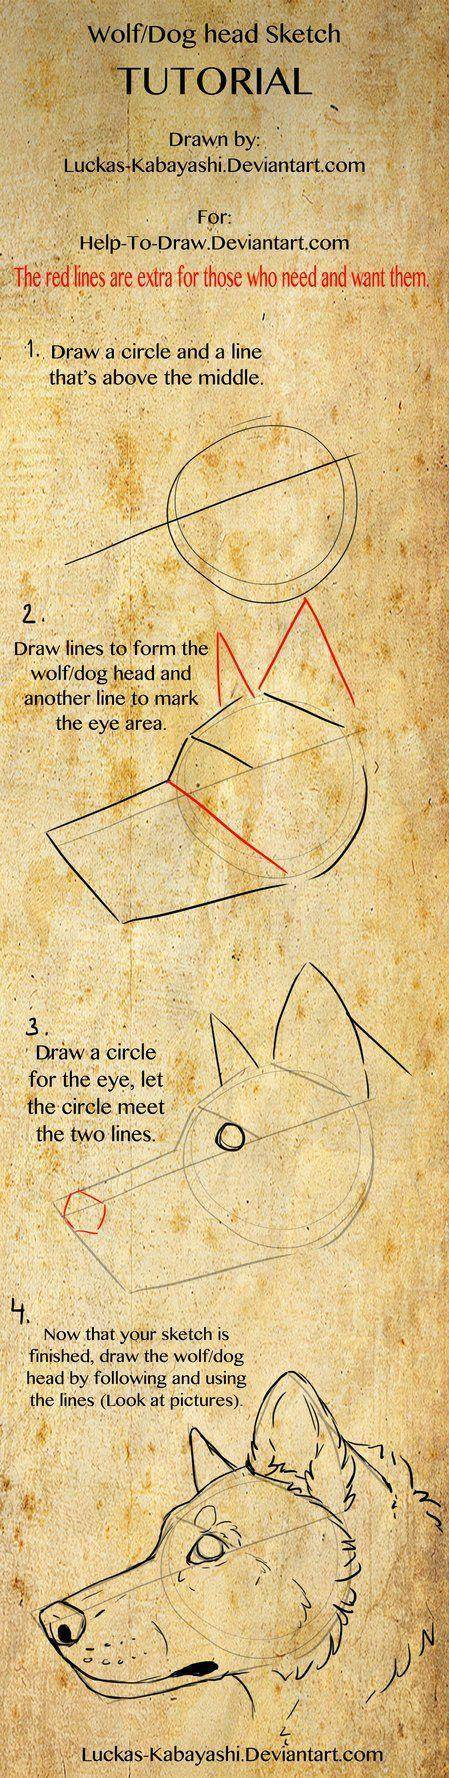 Wolf/Dog head Sketch
TUTORIAL
Drawn by:
Luckas-Kabayashi.Deviantart.com
For:
Help-To-Draw.Deviantart.com
The red lines are extra for those who need and want them.
1. Draw a circle and a line
that's above the middle.
2.
Draw lines to form the
wolf/dog head and
another line to mark
the eye area.
3.
Draw a circle
for the eye, let
the circle meet
the two lines.
4.
Now that your sketch is
finished, draw the wolf/dog
head by following and using
the lines (Look at pictures).
Luckas-Kabayashi.Deviantart.com